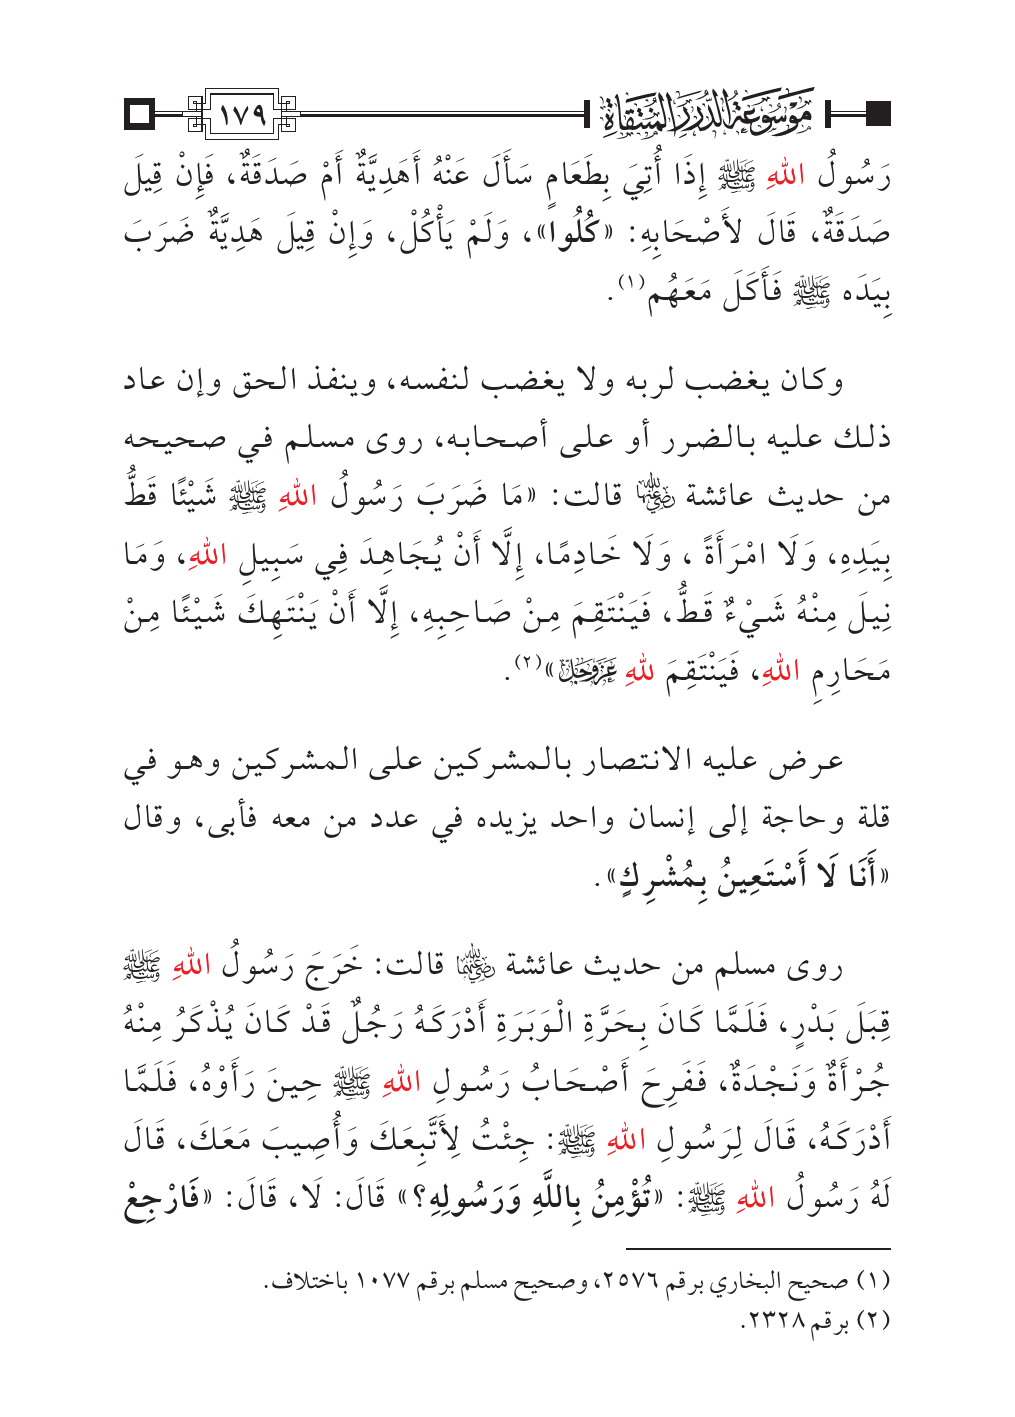 موسوعة الدرر المنتقاة
١٧٩
رَسُولُ اللهِ ﷺ إِذَا أُتِيَ بِطَعَامٍ سَأَلَ عَنْهُ أَهَدِيَّةٌ أَمْ صَدَقَةٌ، فَإِنْ قِيلَ
صَدَقَةٌ، قَالَ لأَصْحَابِهِ: «كُلُوا»، وَلَمْ يَأْكُلْ، وَإِنْ قِيلَ هَدِيَّةٌ ضَرَبَ
بِيَدَه ﷺ فَأَكَلَ مَعَهُم(١).
وكان يغضب لربه ولا يغضب لنفسه، وينفذ الحق وإن عاد
ذلك عليه بالضرر أو على أصحابه، روى مسلم في صحيحه
من حديث عائشة رضي الله عنها قالت: «مَا ضَرَبَ رَسُولُ اللهِ ﷺ شَيْئًا قَطُّ
بِيَدِهِ، وَلَا امْرَأَةً ، وَلَا خَادِمًا، إِلَّا أَنْ يُجَاهِدَ فِي سَبِيلِ اللهِ، وَمَا
نِيلَ مِنْهُ شَيْءٌ قَطُّ، فَيَنْتَقِمَ مِنْ صَاحِبِهِ، إِلَّا أَنْ يَنْتَهِكَ شَيْئًا مِنْ
مَحَارِمِ اللهِ، فَيَنْتَقِمَ للهِ عَزَّ وَجَلَّ»(٢).
عرض عليه الانتصار بالمشركين على المشركين وهو في
قلة وحاجة إلى إنسان واحد يزيده في عدد من معه فأبى، وقال
«أَنَا لَا أَسْتَعِينُ بِمُشْرِكٍ».
روى مسلم من حديث عائشة رضي الله عنها قالت: خَرَجَ رَسُولُ اللهِ ﷺ
قِبَلَ بَدْرٍ، فَلَمَّا كَانَ بِحَرَّةِ الْوَبَرَةِ أَدْرَكَهُ رَجُلٌ قَدْ كَانَ يُذْكَرُ مِنْهُ
جُرْأَةٌ وَنَجْدَةٌ، فَفَرِحَ أَصْحَابُ رَسُولِ اللهِ ﷺ حِينَ رَأَوْهُ، فَلَمَّا
أَدْرَكَهُ، قَالَ لِرَسُولِ اللهِ ﷺ: جِئْتُ لِأَتَّبِعَكَ وَأُصِيبَ مَعَكَ، قَالَ
لَهُ رَسُولُ اللهِ ﷺ: «تُؤْمِنُ بِاللَّهِ وَرَسُولِهِ؟» قَالَ: لَا، قَالَ: «فَارْجِعْ
(١) صحيح البخاري برقم ٢٥٧٦، وصحيح مسلم برقم ١٠٧٧ باختلاف.
(٢) برقم ٢٣٢٨.